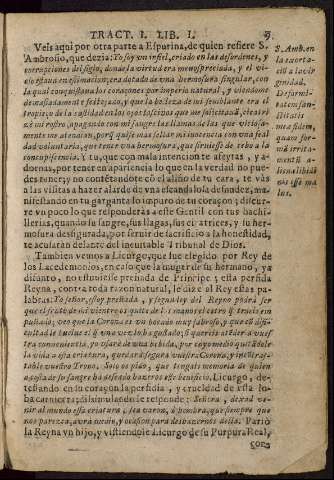 TRACT. I. LIB. I. 9.
Veis aqui por otra parte a Espurina, de quien refiere S.
Ambrosio, que dezia: Yo soy un infiel, criado en las desordenes, y
corrupciones del siglo, donde la virtud era menospreciada, y el vi-
cio estaua en estimacion; era dotado de vna hermosura singular, con
la qual conquistaua los coraçones por imperio natural, y viendome
demasiadamente festejado, y que la belleza de mi semblante era el
tropieço de la castidad en los ojos
mi rostro, apagando con mi sangre las llamas de las que
mente me atendian, porq̃ quise mas sellar mi inocencia con vna feal
dad voluntaria, que tener vna hermosura, que siruiesse de cebo a la
concupiscencia. Y tu, que con mala intencion te afeytas, y a-
dornas, por tener en apariencia lo que en la verdad no pue-
des tener; y no contentandote cõ el aliño de tu cara, te vàs
a las visitas a hazer alarde de vna escandalosa desnudez, ma-
nifestando en tu garganta lo impuro de tu coraçon; discur-
re vn poco lo que responderàs a este Gentil con tus bachi-
llerias, quando su sangre, sus llagas, sus cicatrizes, y su her-
mosura desfigurada, por seruir de sacrificio a la honestidad,
te acusaràn delante del ineuitable Tribunal de Dios.
Tambien vemos a Licurgo, que fue elegido por Rey de
los Lacedemonios, en caso que la muger de su hermano, ya
difunto, no estuuiesse preñada de Principe; y esta perfida
Reyna, contra toda razon natural, le dize al Rey estas pa-
labras: Yo señor, estoy preñada, y segun ley del Reyno podrà ser
que el fruto de mi vientre os quite de la mano el cetro q̃ teneis em-
puñado; veo que la Corona es vn bocado muy sabroso, y que es dif-
cultad le suelte el q̃ vna vez le ha gustado; si quereis atender a vues-
tra conueniencia, yo usarè de vna bebida, por cuyo medio quitãdole
la vida a esta criatura, quedarà segura vuestra Corona, y
vuestro Trono. Solo os pido, que tengais memoria de quien
a costa de su sangre ha deseado hazeros este beneficio. Licurgo, de-
testando en su coraçon la perfidia, y crueldad de esta lo-
ba carnicera; disimulandose responde: Señora, dexad ve-
nir al mundo essa criatura, sea varon, ò hembra, que siempre que
nos parezca, aurà modo, y ocasion para desbazernos della. Pariò
la Reyna vn hijo, y vistiendole Licurgo de su Purpura Real,
con-
S. Amb. en
la exorta-
ciõ a la vir
ginidad.
Deformi-
tatem san-
ctitatis
meæ fidem
quam for-
ma
alienæ libidi
nis esse ma
lui.